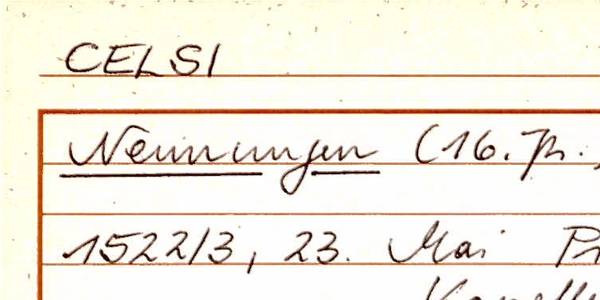 CELSI
Nennungen (16. Jh.,
1522/3, 23. Mai Pr